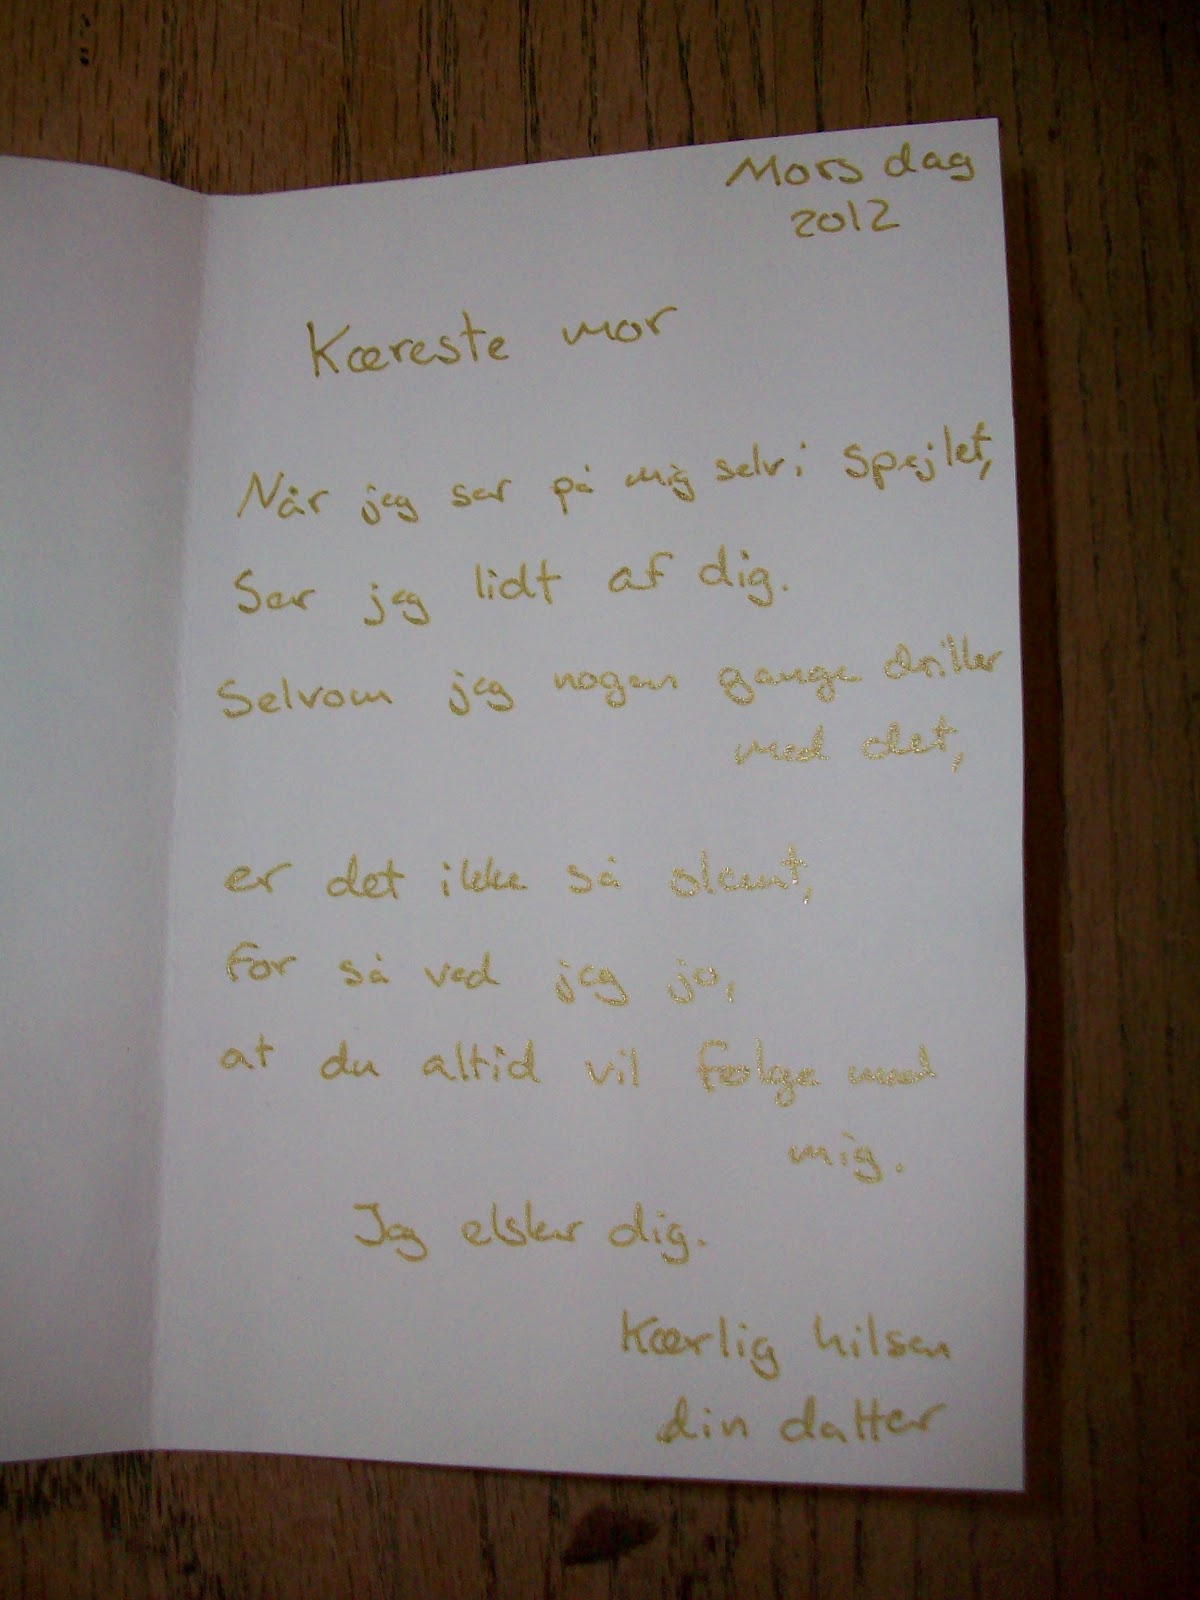 Mors dag
2012
Kæreste mor
Når jeg ser på mig selv i spejlet,
Ser jeg lidt af dig.
Selvom jeg nogen gange driller
med det,
er det ikke så slemt,
for så ved jeg jo,
at du altid vil følge med
mig.
Jeg elsker dig.
Kærlig hilsen
din datter